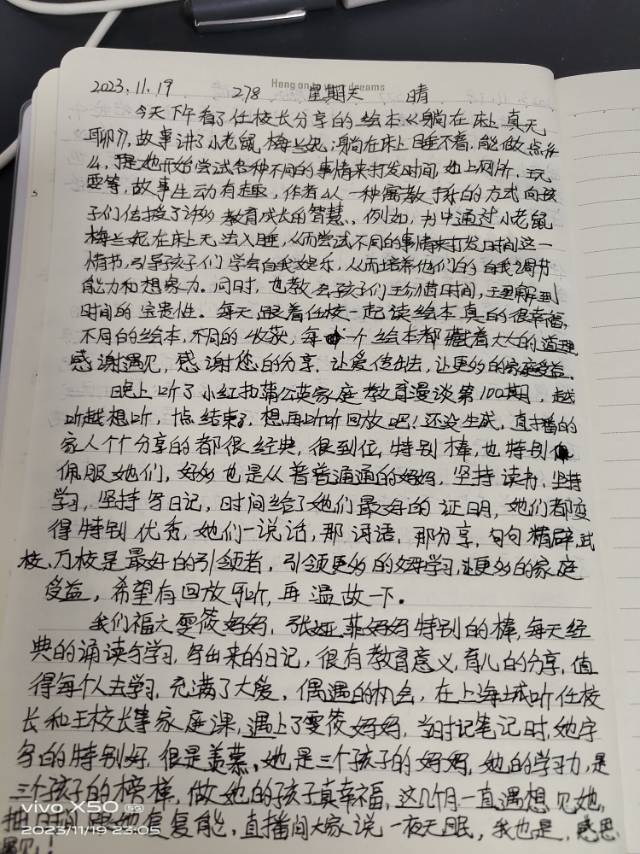 Hang on to your dreams
2023.11.19 278 星期天 晴
今天下午看了任校长分享的绘本《躺在床上真无
聊》,故事讲了小老鼠梅兰妮,躺在床上睡不着,能做点什
么,是她开始尝试各种不同的事情来打发时间,如上网,玩
耍等,故事生动有趣,作者以一种寓教于乐的方式向孩
子们传授了许多教育成长的智慧、例如,书中通过小老鼠
梅兰妮在床上无法入睡,从而尝试不同的事情来打发时间这一
情节,引导孩子们学会自我娱乐,从而培养他们的自我调节
能力和想象力。同时,也教会孩子们珍惜时间,理解到
时间的宝贵性。每天跟着任校一起读绘本真的很幸福,
不同的绘本,不同的收获,每一个绘本都藏着大大的道理
感谢遇见,感谢您的分享.让爱传出去,让更多的家庭受益.
晚上听了小红拍蒲公英家庭教育漫谈第100期,越
听越想听,10点结束了,想再听听回放吧!还没生成,直播的
家人个个分享的都很经典,很到位,特别棒,也特别
佩服她们,好多也是从普普通通的妈妈,坚持读书,坚持
学习,坚持写日记,时间给了她们最好的证明,她们都变
得特别优秀,她们一说话,那词语,那分享,句句精辟,武
校、万校是最好的引领者,引领更多的妈妈学习,让更多的家庭
受益,希望有回放听,再温故一下。
我们福六雯筱妈妈,张娅菲妈妈特别的棒,每天经
典的诵读与学习,写出来的日记,很有教育意义,育儿的分享,值
得每个人去学习,充满了大爱,偶遇的机会,在上海城听任校
长和王校长等家庭课,遇上了雯筱妈妈,当时记笔记时,她字
写的特别好,很是羡慕,她是三个孩子的妈妈,她的学习力,是
三个孩子的榜样,做她的孩子真幸福,这几个月一直遇想见她,
她复复能,直播间大家说一夜无眠,我也是,感恩
遇见!
vivo X50 5G
2023/11/19 23:05